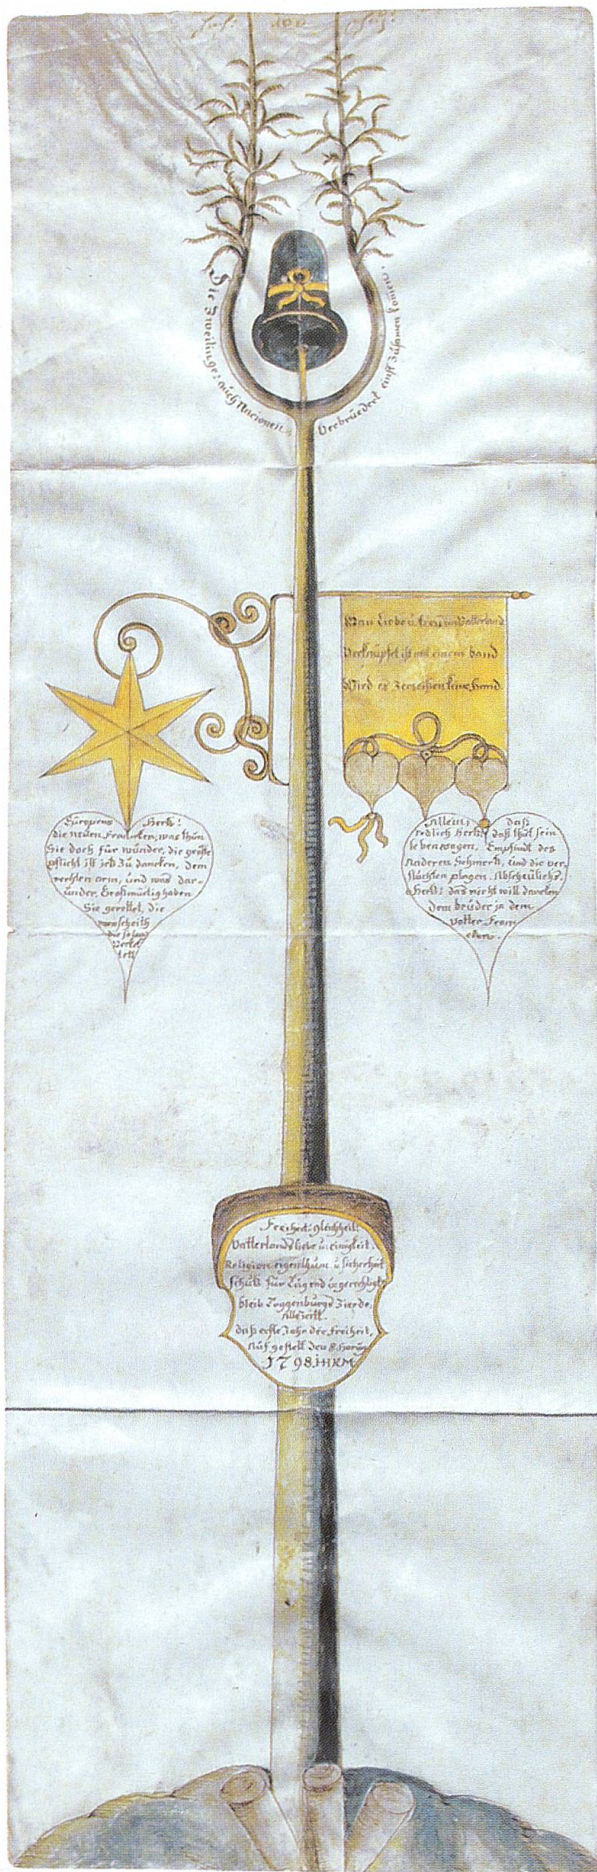 Die Zweilinge: auch Nacionen,
Verbrüedert einst Zusamen komen.
Wan Liebe u: treu im Vatterland
Verknüpfet ist mit einem band
Wird es Zerreißen keine Hand.
Europens Hertz!
die neuen Francken, was thun
Sie doch für wunder, die größte
pflicht ist jetz Zu dancken, dem
rechten arm, und was dar-
under, Großmüetig haben
Sie gerettet, die
menscheith
die so lang
Allein; das
redlich Hertz daß thut sein
le ben wagen, Empfindt des
Anderen Schmertz, und die ver-
fluchten plagen. Abscheülichs,
Hertz: das nicht will dancken
dem brüder ja dem
Vatter Fran
cken.
Freiheit: gleichheit:
Vatterlandsliebe u: einigkeit.
Religion eigenthum u sicherheit
schutz für Tugend u gerechtigke
bleib Toggenburgs Zierde.
Allezeitt.
das erste Jahr der Freiheit,
Auf gestelt den 8. Hornug
1798. HKM